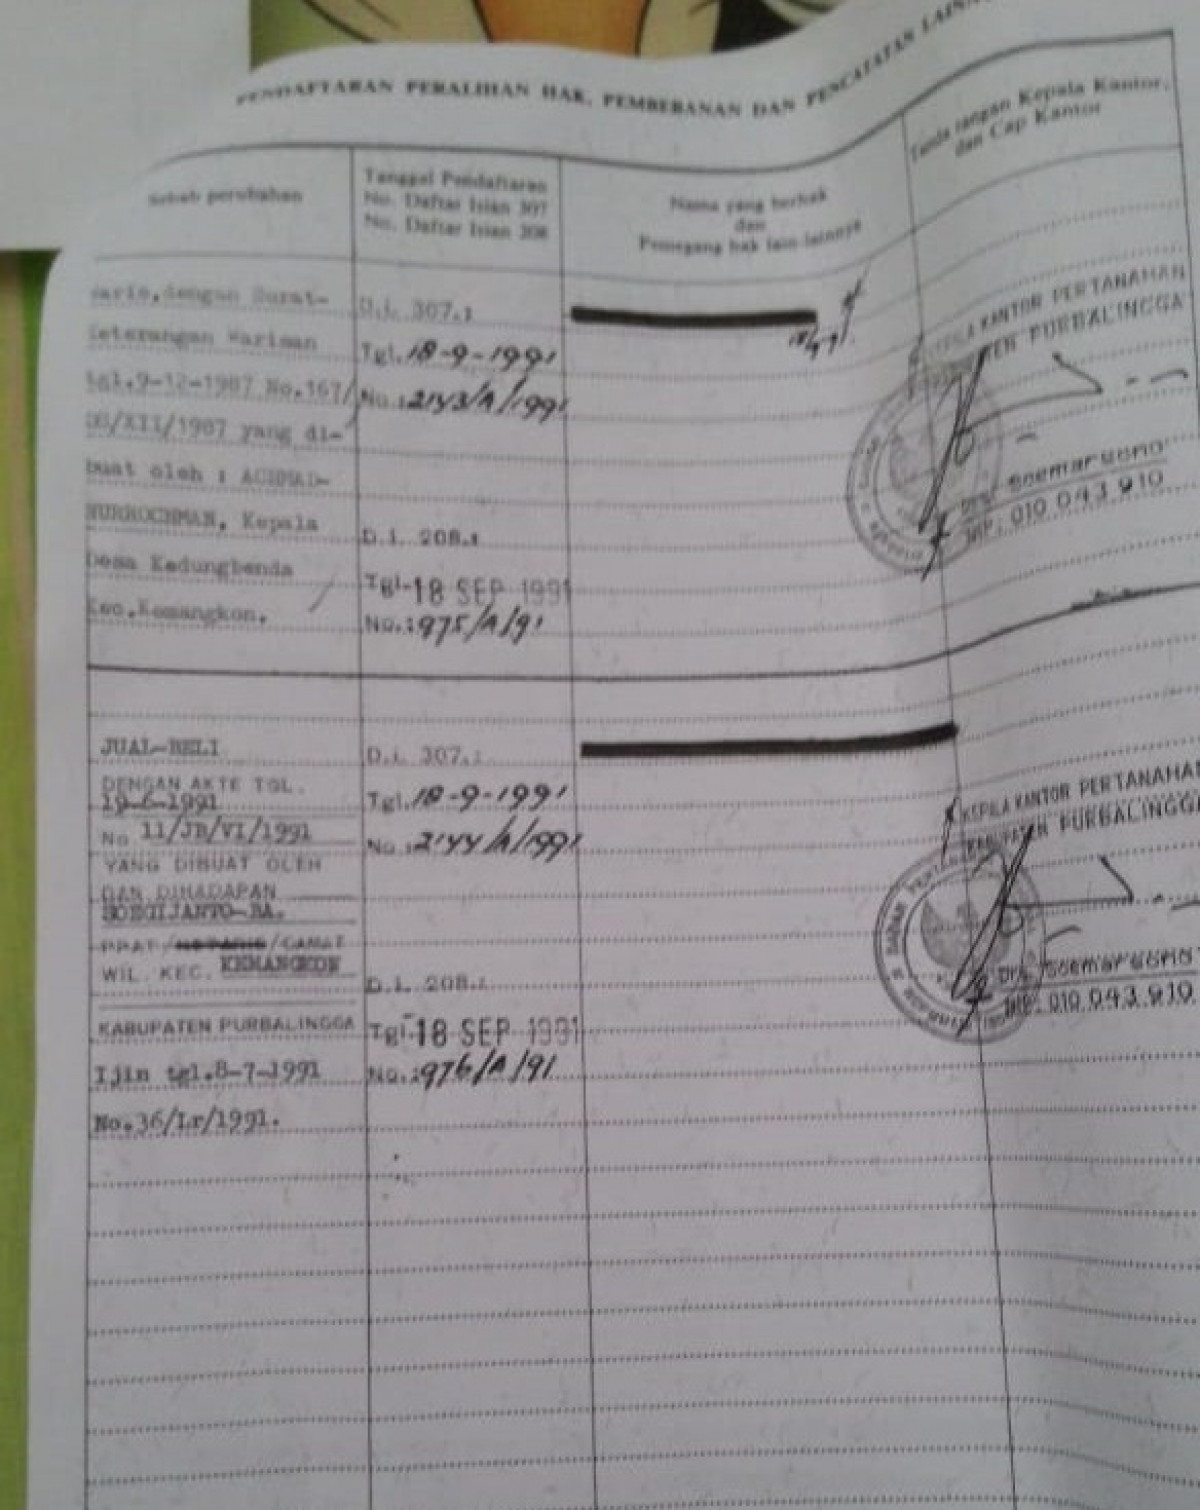 PENDAFTARAN PERALIHAN HAK, PEMBEBANAN DAN PENCATATAN LAINN
Sebab perubahan
Tanggal Pendaftaran
No. Daftar Isian 307
No. Daftar Isian 208
Nama yang berhak
dan
Pemegang hak lain-lainnya
Tanda tangan Kepala Kantor,
dan Cap Kantor
waris,dengan Surat-
Keterangan Warisan
tgl.9-12-1987 No.167/
36/XII/1987 yang di-
buat oleh : ACHMAD-
NURROCHMAN, Kepala
Desa Kedungbenda
Kec.Kemangkon.
D.i. 307.:
Tgl. 18-9-1991
No.: 2143/A/1991
D.i. 208.:
Tgl. 18 SEP 1991
No.: 975/A/91
KEPALA KANTOR PERTANAHAN
PURBALINGGA
Drs. Soemarsono
NIP: 010 043 910
JUAL-BELI
DENGAN AKTE TGL.
19-6-1991
No 11/JB/VI/1991
YANG DIBUAT OLEH
DAN DIHADAPAN
SOEGIJANTO-BA.
PPAT/NOTARIS/CAMAT
WIL. KEC. KEMANGKON
KABUPATEN PURBALINGGA
Ijin tgl.8-7-1991
No.36/Lr/1991.
D.i. 307.:
Tgl. 18-9-1991
No.: 2144/A/1991
D.i. 208.:
Tgl. 18 SEP 1991
No.: 976/A/91
KEPALA KANTOR PERTANAHAN
KABUPATEN PURBALINGGA
Drs. Soemarsono
NIP: 010 043 910